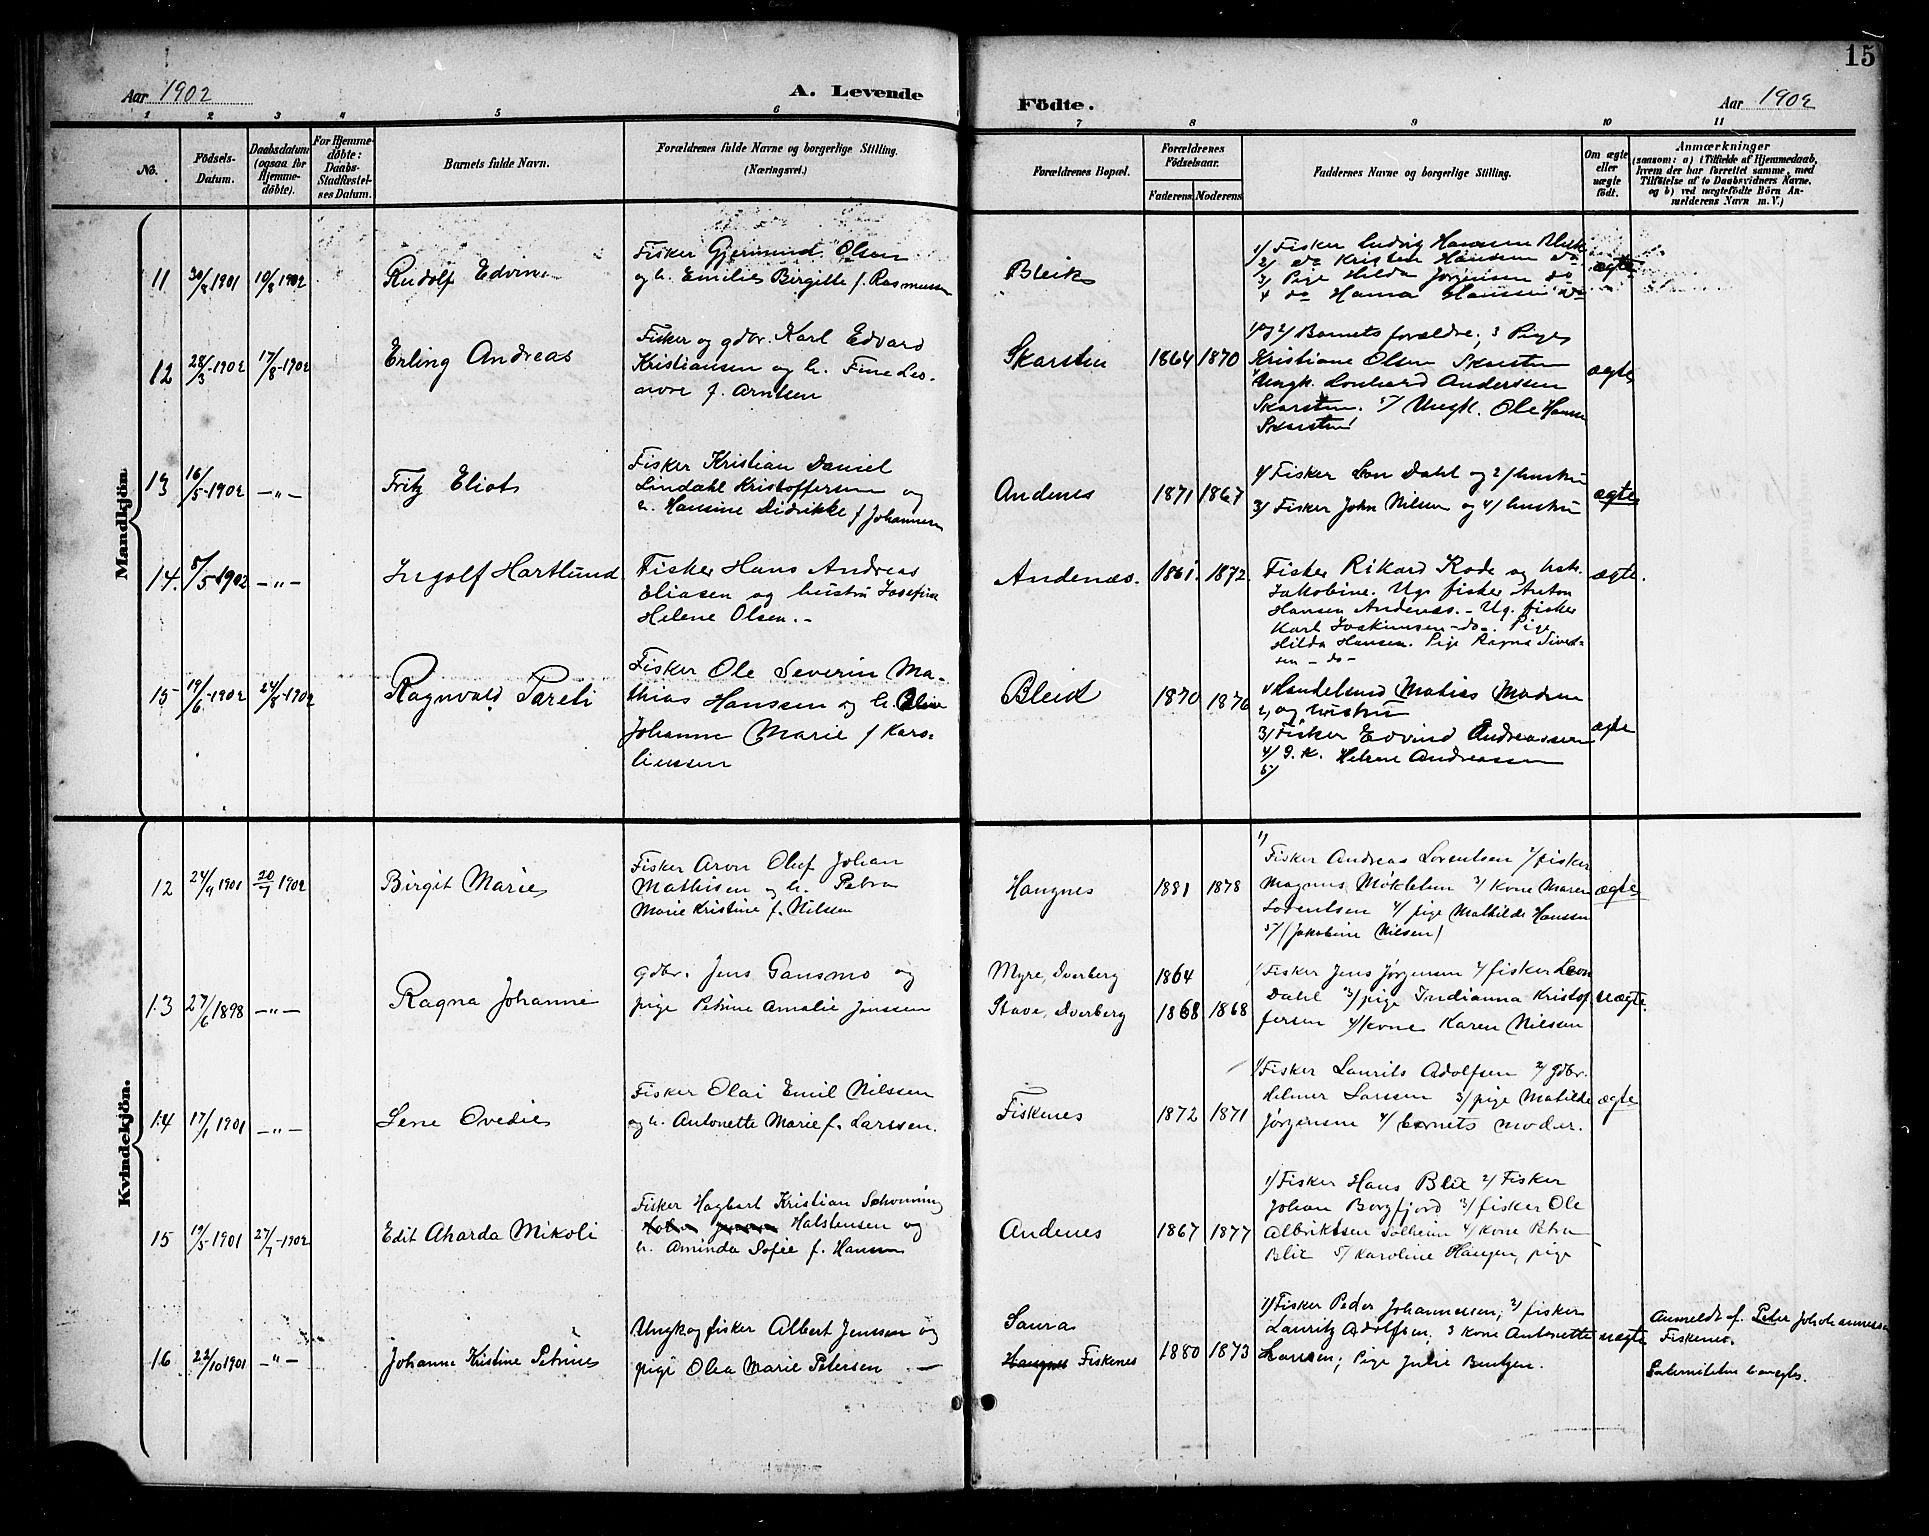 15
Aar 1902
A. Levende
Födte.
Aar 1902
1 2 3 4 5 6 7 8 9 10 11
No.
Födsels-
Datum.
Daabsdatum
(ogsaa for
Hjemme-
döbte).
For Hjemme-
döbte:
Daabs-
Stadfæstel-
ses Datum.
Barnets fulde Navn.
Forældrenes fulde Navne og borgerlige Stilling.
(Næringsvei.)
Forældrenes Bopæl.
Forældrenes
Födselsaar.
Faderens. Moderens.
Faddernes Navne og borgerlige Stilling.
Om ægte
eller
uægte
födt.
Anmærkninger
(saasom: a) i Tilfælde af Hjemmedaab,
hvem der har forrettet samme, med
Tilföielse af to Daabsvidners Navne,
og b) ved uægtefödte Börn An-
melderens Navn m. V.)
Mandkjön
11
30/8 1901
10/8 1902
Rudolf Edvin
Fisker Gjermund Olsen
og h. Emilie Birgitte f. Rasmussen
Bleik
1) Fisker Ludvig Hanssen Bleik
2) do Kristen Hansen do
3) Pige Hilda Jørgensen do
4 do Hanna Hanssen do
ægte
12
28/3-1902
17/8-1902
Erling Andreas
Fisker og gdbr. Karl Edvard
Kristiansen og h. Fine Leo-
nore f. Arntsen
Skarstein
1864
1870
1 og 2) Barnets forældre; 3 Pige
Kristiane Olsen Skarsten
4 Ungk. Lonhard Anderssen
Skarsten. 5) Ungk. Ole Hansen
Skarsten
ægte
13
16/5-1902
—"—
Fritz Eliot
Fisker Kristian Daniel
Lindahl Kristoffersen og
h. Hansine Didrikke f Johannesen
Andenes
1871
1867
1) Fisker Leon Dahl og 2) hustru
3) Fisker John Nilsen og 4) hustru
ægte
14.
8/5-1902
—"—
Ingolf Hartlund
Fisker Hans Andreas
Eliasen og hustru Josefine
Helene Olsen.-
Andenæs.
1861.
1872.
Fisker Rikard Rode og hstr.
Jakobine. Ug. fisker Anton
Hansen Andenæs. - Ug. fisker
Karl Joakimsen - do. Pige
Hilda Hansen. Pige Ragna Sivert-
sen - do -
ægte.
15
19/6-1902
24/8-1902
Ragnvald Pareli
Fisker Ole Severin Ma-
thias Hanssen og h. Oline
Johanne Marie f Karo-
liussen
Bleik
1870
1876
1) Handelsmd Matias Madsen
2, og hustru
3) Fisker Edvind Andreassen
4) G. K. Helene Andreassen
5)
ægte
Kvindekjön.
12
24/4 1901
20/7 1902
Birgit Marie
Fisker Aron Oluf Johan
Mathisen og h. Petra
Marie Kristine f. Nilsen
Haugnes
1881
1878
1)
Fisker Andreas Lorentsen 2) fisker
Magnus Møkkelsen 3) Kone Maren
Lorentsen 4) pige Mathilde Hanssen
5) (Jakobine Nilsen)
ægte
13
27/6 1898
—"—
Ragna Johanne
gdbr. Jens Gansmo og
pige Petrine Amalie Jenssen
Myre, Dverberg
Stave, Dverberg
1864
1868
1868
1) Fisker Jens Jørgensen 2) fisker Leon
Dahl 3) pige Indianna Kristof
fersen 4) kone Karen Nilsen
uægte.
14
17/1 1901
—"—
Lene Ovedie
Fisker Olai Emil Nilssen
og h. Antonette Marie f. Larssen.
Fiskenes
1872
1871
1) Fisker Laurits Adolfsen 2) gdbr.
Helmer Larssen 3) pige Matilde
Jørgensen 4) barnets moder.
ægte
15
19/5-1901
27/7-1902
Edit Aharda Mikoli
Fisker Hagbart Kristian Schønning
Halstensen og
h. Aminda Sofie f. Hansen
Andenes
1867
1877
1) Fisker Hans Blix 2) Fisker
Johan Borgfjord 3) fisker Ole
Albriktsen Solheim 4) kone Petra
Blix 5) Karoline Haugen, pige
16
22/10 1901
—"—
Johanne Kristine Petrine
Ungk og fisker Albert Jenssen og
pige Olea Marie Petersen —
Saura
Haugnes Fiskenes
1880
1873
1) Fisker Peder Johannessen; 2) fisker
Lauritz Adolfsen, 3 kone Antonette
Larssen; Pige Julie Bentzen.
uægte
Anmeldt af Peder Johannessen
Fiskenes.